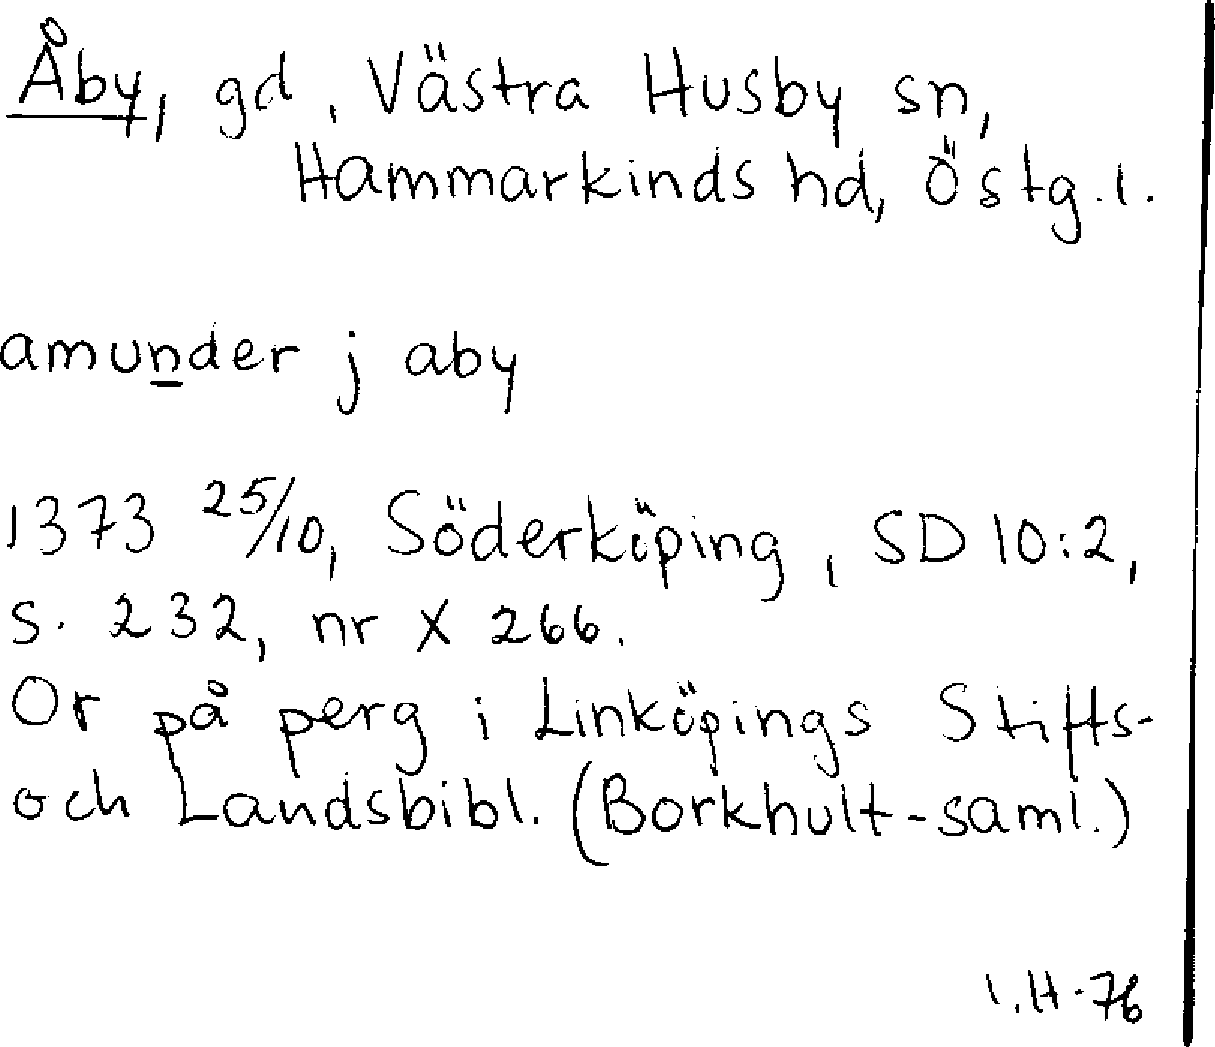 Åby, gd, Västra Husby sn,
Hammarkinds hd, Östg.l.
amunder j aby
1373 25/10, Söderköping, SD 10:2,
s. 232, nr X 266.
Or på perg i Linköpings Stifts-
och Landsbibl. (Borkhult-saml.)
I.H-76